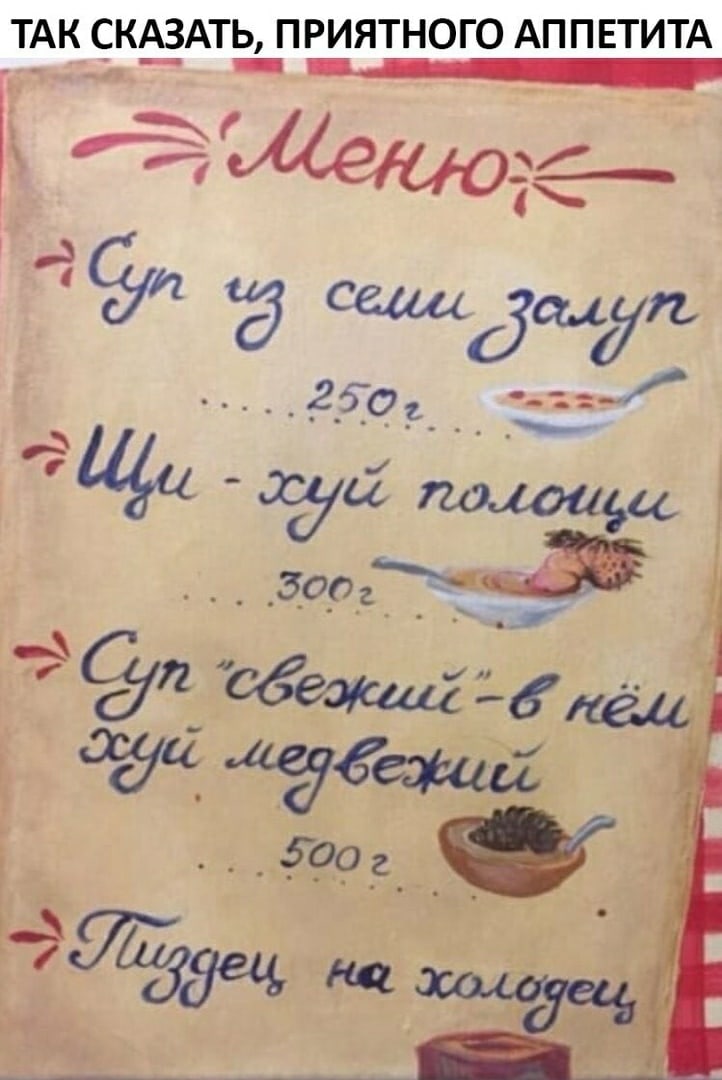 ТАК СКАЗАТЬ, ПРИЯТНОГО АППЕТИТА
Меню
Суп из семи залуп
.....250г....
Щи - хуй полощи
....300г....
Суп "свежий" - в нём
хуй медвежий
....500г....
Пиздец на холодец